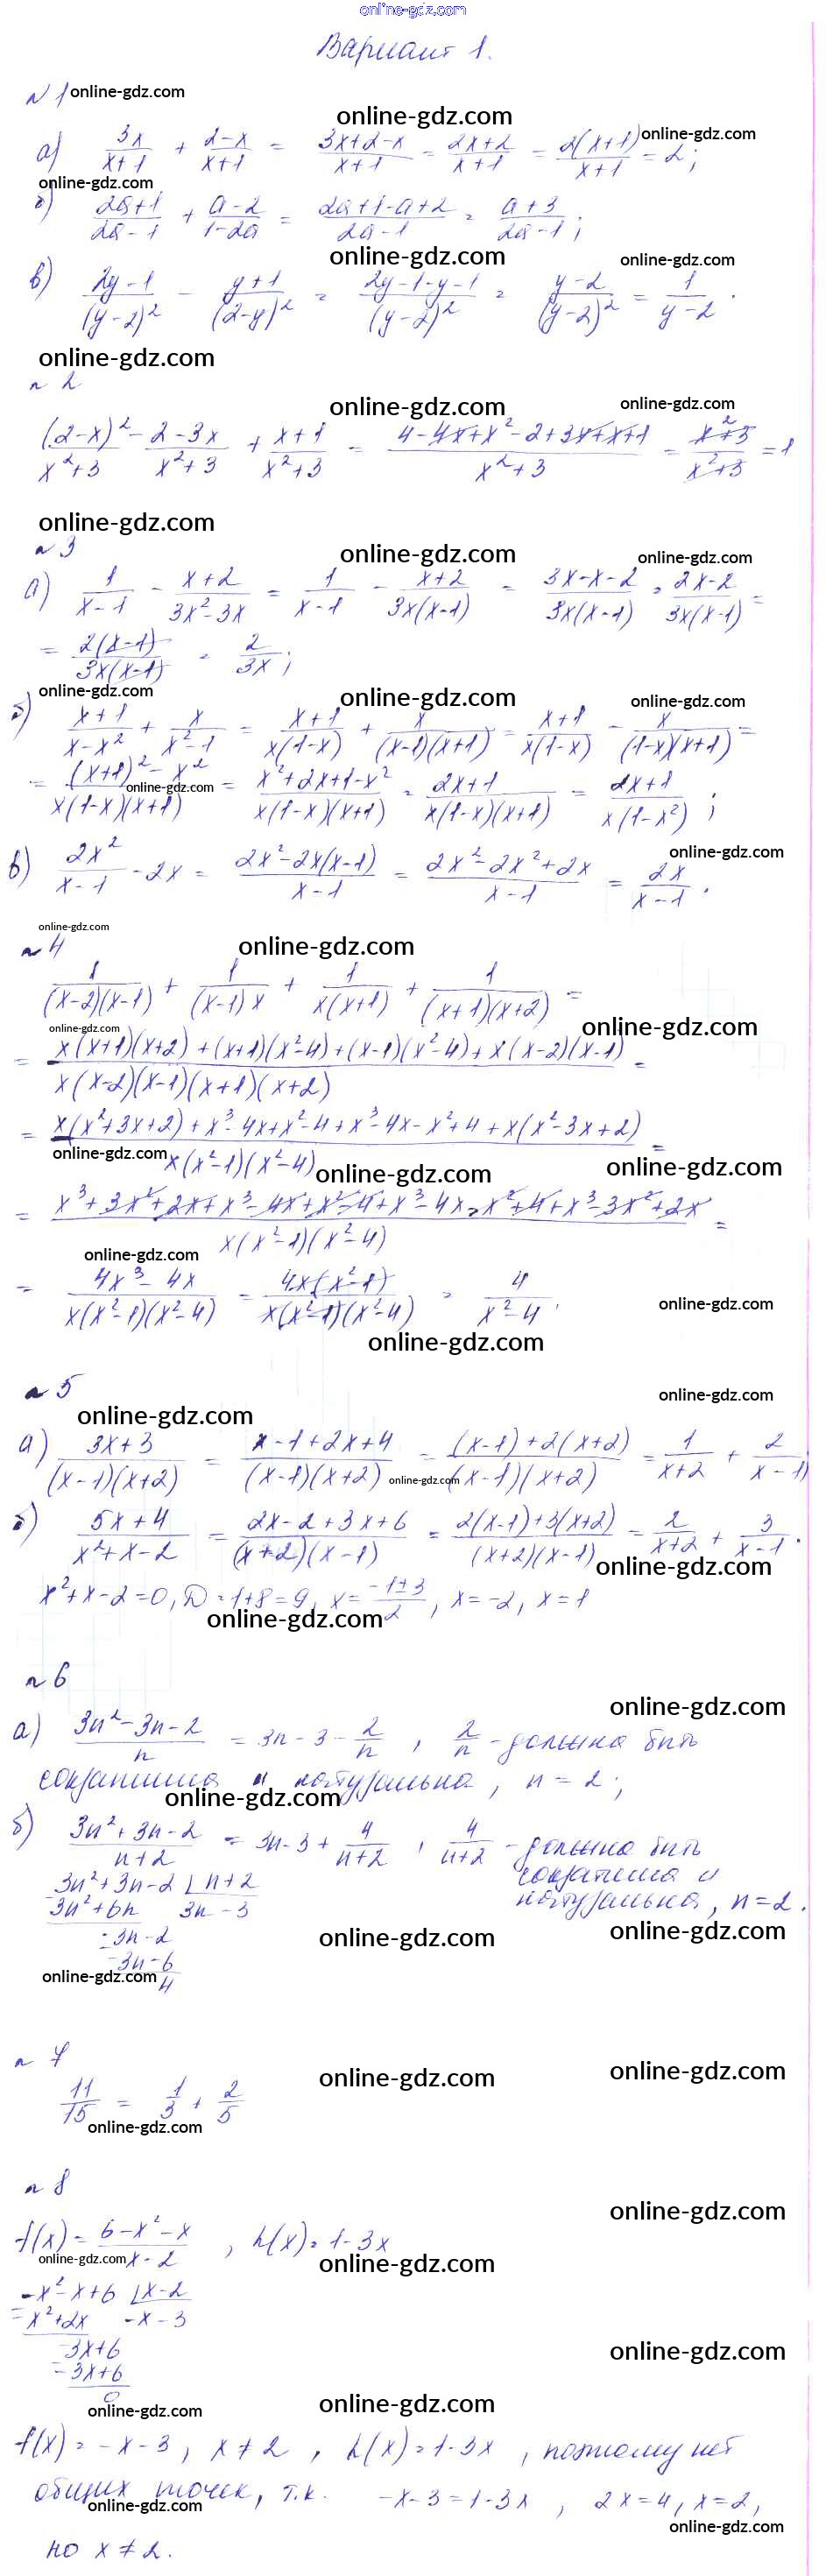 online-gdz.com
Вариант 1.
№1 online-gdz.com
online-gdz.com
а) 3x/(x+1) + (2-x)/(x+1) = (3x+2-x)/(x+1) = (2x+2)/(x+1) = 2(x+1)/(x+1) = 2; online-gdz.com
online-gdz.com
б) (2a+1)/(2a-1) + (a-2)/(1-2a) = (2a+1-a+2)/(2a-1) = (a+3)/(2a-1);
online-gdz.com online-gdz.com
в) (2y-1)/(y-2)² - (y+1)/(2-y)² = (2y-1-y-1)/(y-2)² = (y-2)/(y-2)² = 1/(y-2).
online-gdz.com
№2
online-gdz.com online-gdz.com
(2-x)²/(x²+3) - (2-3x)/(x²+3) + (x+1)/(x²+3) = (4-4x+x²-2+3x+x+1)/(x²+3) = (x²+3)/(x²+3) = 1
online-gdz.com
№3
online-gdz.com online-gdz.com
а) 1/(x-1) - (x+2)/(3x²-3x) = 1/(x-1) - (x+2)/(3x(x-1)) = (3x-x-2)/(3x(x-1)) = (2x-2)/(3x(x-1)) =
= 2(x-1)/(3x(x-1)) = 2/(3x);
online-gdz.com online-gdz.com online-gdz.com
б) (x+1)/(x-x²) + x/(x²-1) = (x+1)/(x(1-x)) + x/((x-1)(x+1)) = (x+1)/(x(1-x)) - x/((1-x)(x+1)) =
= ((x+1)²-x²)/(x(1-x)(x+1)) = (x²+2x+1-x²)/(x(1-x)(x+1)) = (2x+1)/(x(1-x)(x+1)) = (2x+1)/(x(1-x²));
online-gdz.com
online-gdz.com
в) 2x²/(x-1) - 2x = (2x²-2x(x-1))/(x-1) = (2x²-2x²+2x)/(x-1) = 2x/(x-1).
online-gdz.com
№4 online-gdz.com
1/((x-2)(x-1)) + 1/((x-1)x) + 1/(x(x+1)) + 1/((x+1)(x+2)) =
online-gdz.com online-gdz.com
= (x(x+1)(x+2)+(x+1)(x²-4)+(x-1)(x²-4)+x(x-2)(x-1))/(x(x-2)(x-1)(x+1)(x+2)) =
= (x(x²+3x+2)+x³-4x+x²-4+x³-4x-x²+4+x(x²-3x+2))/(x(x²-1)(x²-4)) =
online-gdz.com online-gdz.com online-gdz.com
= (x³+3x²+2x+x³-4x+x²-4+x³-4x-x²+4+x³-3x²+2x)/(x(x²-1)(x²-4)) =
online-gdz.com
= (4x³-4x)/(x(x²-1)(x²-4)) = 4x(x²-1)/(x(x²-1)(x²-4)) = 4/(x²-4). online-gdz.com
online-gdz.com
№5 online-gdz.com
online-gdz.com
а) (3x+3)/((x-1)(x+2)) = (x-1+2x+4)/((x-1)(x+2)) = ((x-1)+2(x+2))/((x-1)(x+2)) = 1/(x+2) + 2/(x-1)
online-gdz.com
б) (5x+4)/(x²+x-2) = (2x-2+3x+6)/((x+2)(x-1)) = (2(x-1)+3(x+2))/((x+2)(x-1)) = 2/(x+2) + 3/(x-1).
online-gdz.com
x²+x-2=0, D=1+8=9, x=(-1±3)/2, x=-2, x=1
online-gdz.com
№6
online-gdz.com
а) (3n²-3n-2)/n = 3n-3-2/n, 2/n - должна быть
сократима и натуральна, n=2;
online-gdz.com
б) (3n²+3n-2)/(n+2) = 3n-3+4/(n+2), 4/(n+2) - должна быть
сократима и
натуральна, n=2.
3n²+3n-2 | n+2
3n²+6n 3n-3
-3n-2
-3n-6
4
online-gdz.com online-gdz.com
online-gdz.com
№7
online-gdz.com online-gdz.com
11/15 = 1/3 + 2/5
online-gdz.com
№8
online-gdz.com
f(x) = (6-x²-x)/(x-2), h(x)=1-3x
online-gdz.com online-gdz.com
-x²-x+6 | x-2
-x²+2x -x-3
-3x+6
-3x+6
0
online-gdz.com
online-gdz.com online-gdz.com
f(x)=-x-3, x≠2, h(x)=1-3x, поэтому нет
общих точек, т.к. -x-3=1-3x, 2x=4, x=2,
online-gdz.com
online-gdz.com
но x≠2.